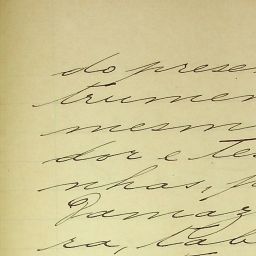 do prese
trumen
mesm
dor e tes
nhas, p
Damaz
ra, Cab